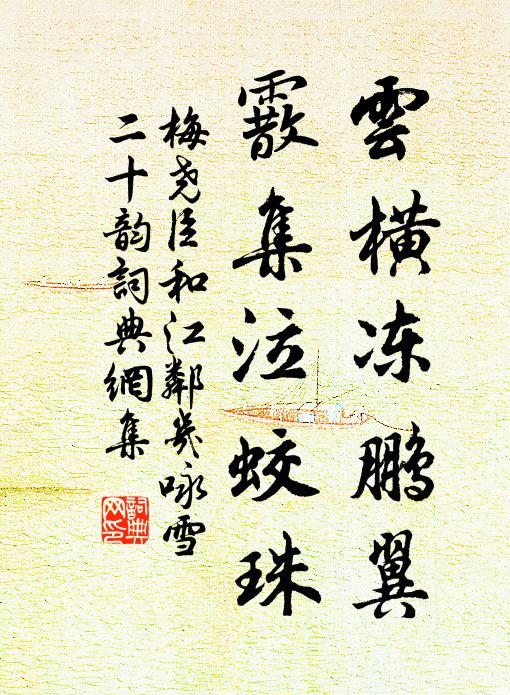 雲橫冻鹏翼
霰集泣蛟珠
梅尧臣和江鄰幾咏雪
二十韵詞典網集
詞典
网印